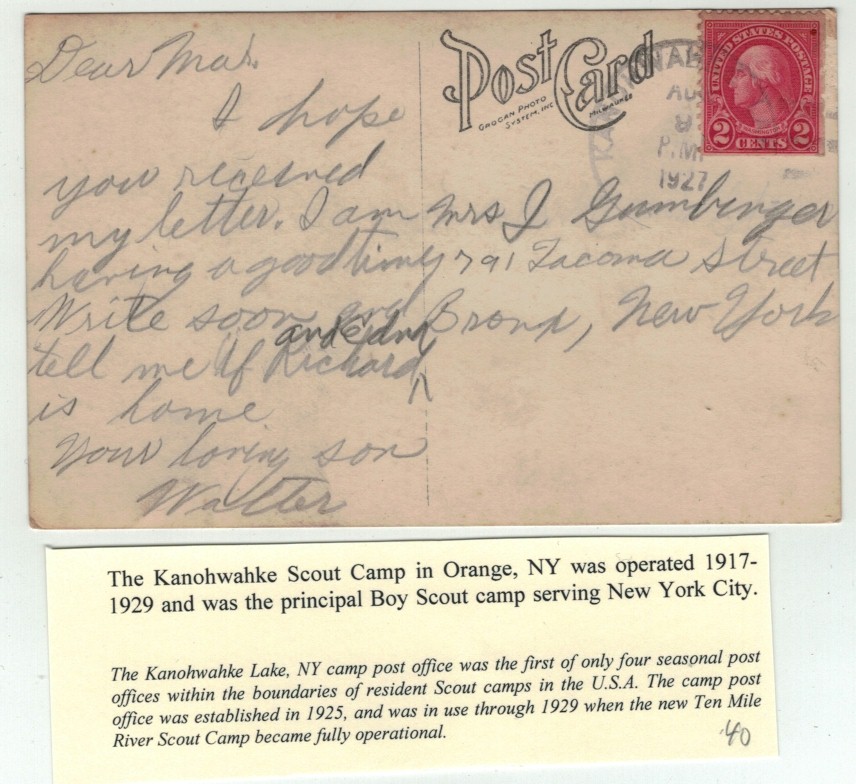 Dear Ma.
I hope
you received
my letter. I am
having a good time
Write soon and
tell me if Richard and Edna
is home
Your loving son
Walter
Post Card
GROGAN PHOTO
SYSTEM, INC.
MILWAUKEE
AU
8
P.M.
1927
UNITED STATES POSTAGE
WASHINGTON
2 CENTS 2
Mrs J Gumbinger
791 Tacoma Street
Bronx, New York
The Kanohwahke Scout Camp in Orange, NY was operated 1917-
1929 and was the principal Boy Scout camp serving New York City.
The Kanohwahke Lake, NY camp post office was the first of only four seasonal post
offices within the boundaries of resident Scout camps in the U.S.A. The camp post
office was established in 1925, and was in use through 1929 when the new Ten Mile
River Scout Camp became fully operational.
40